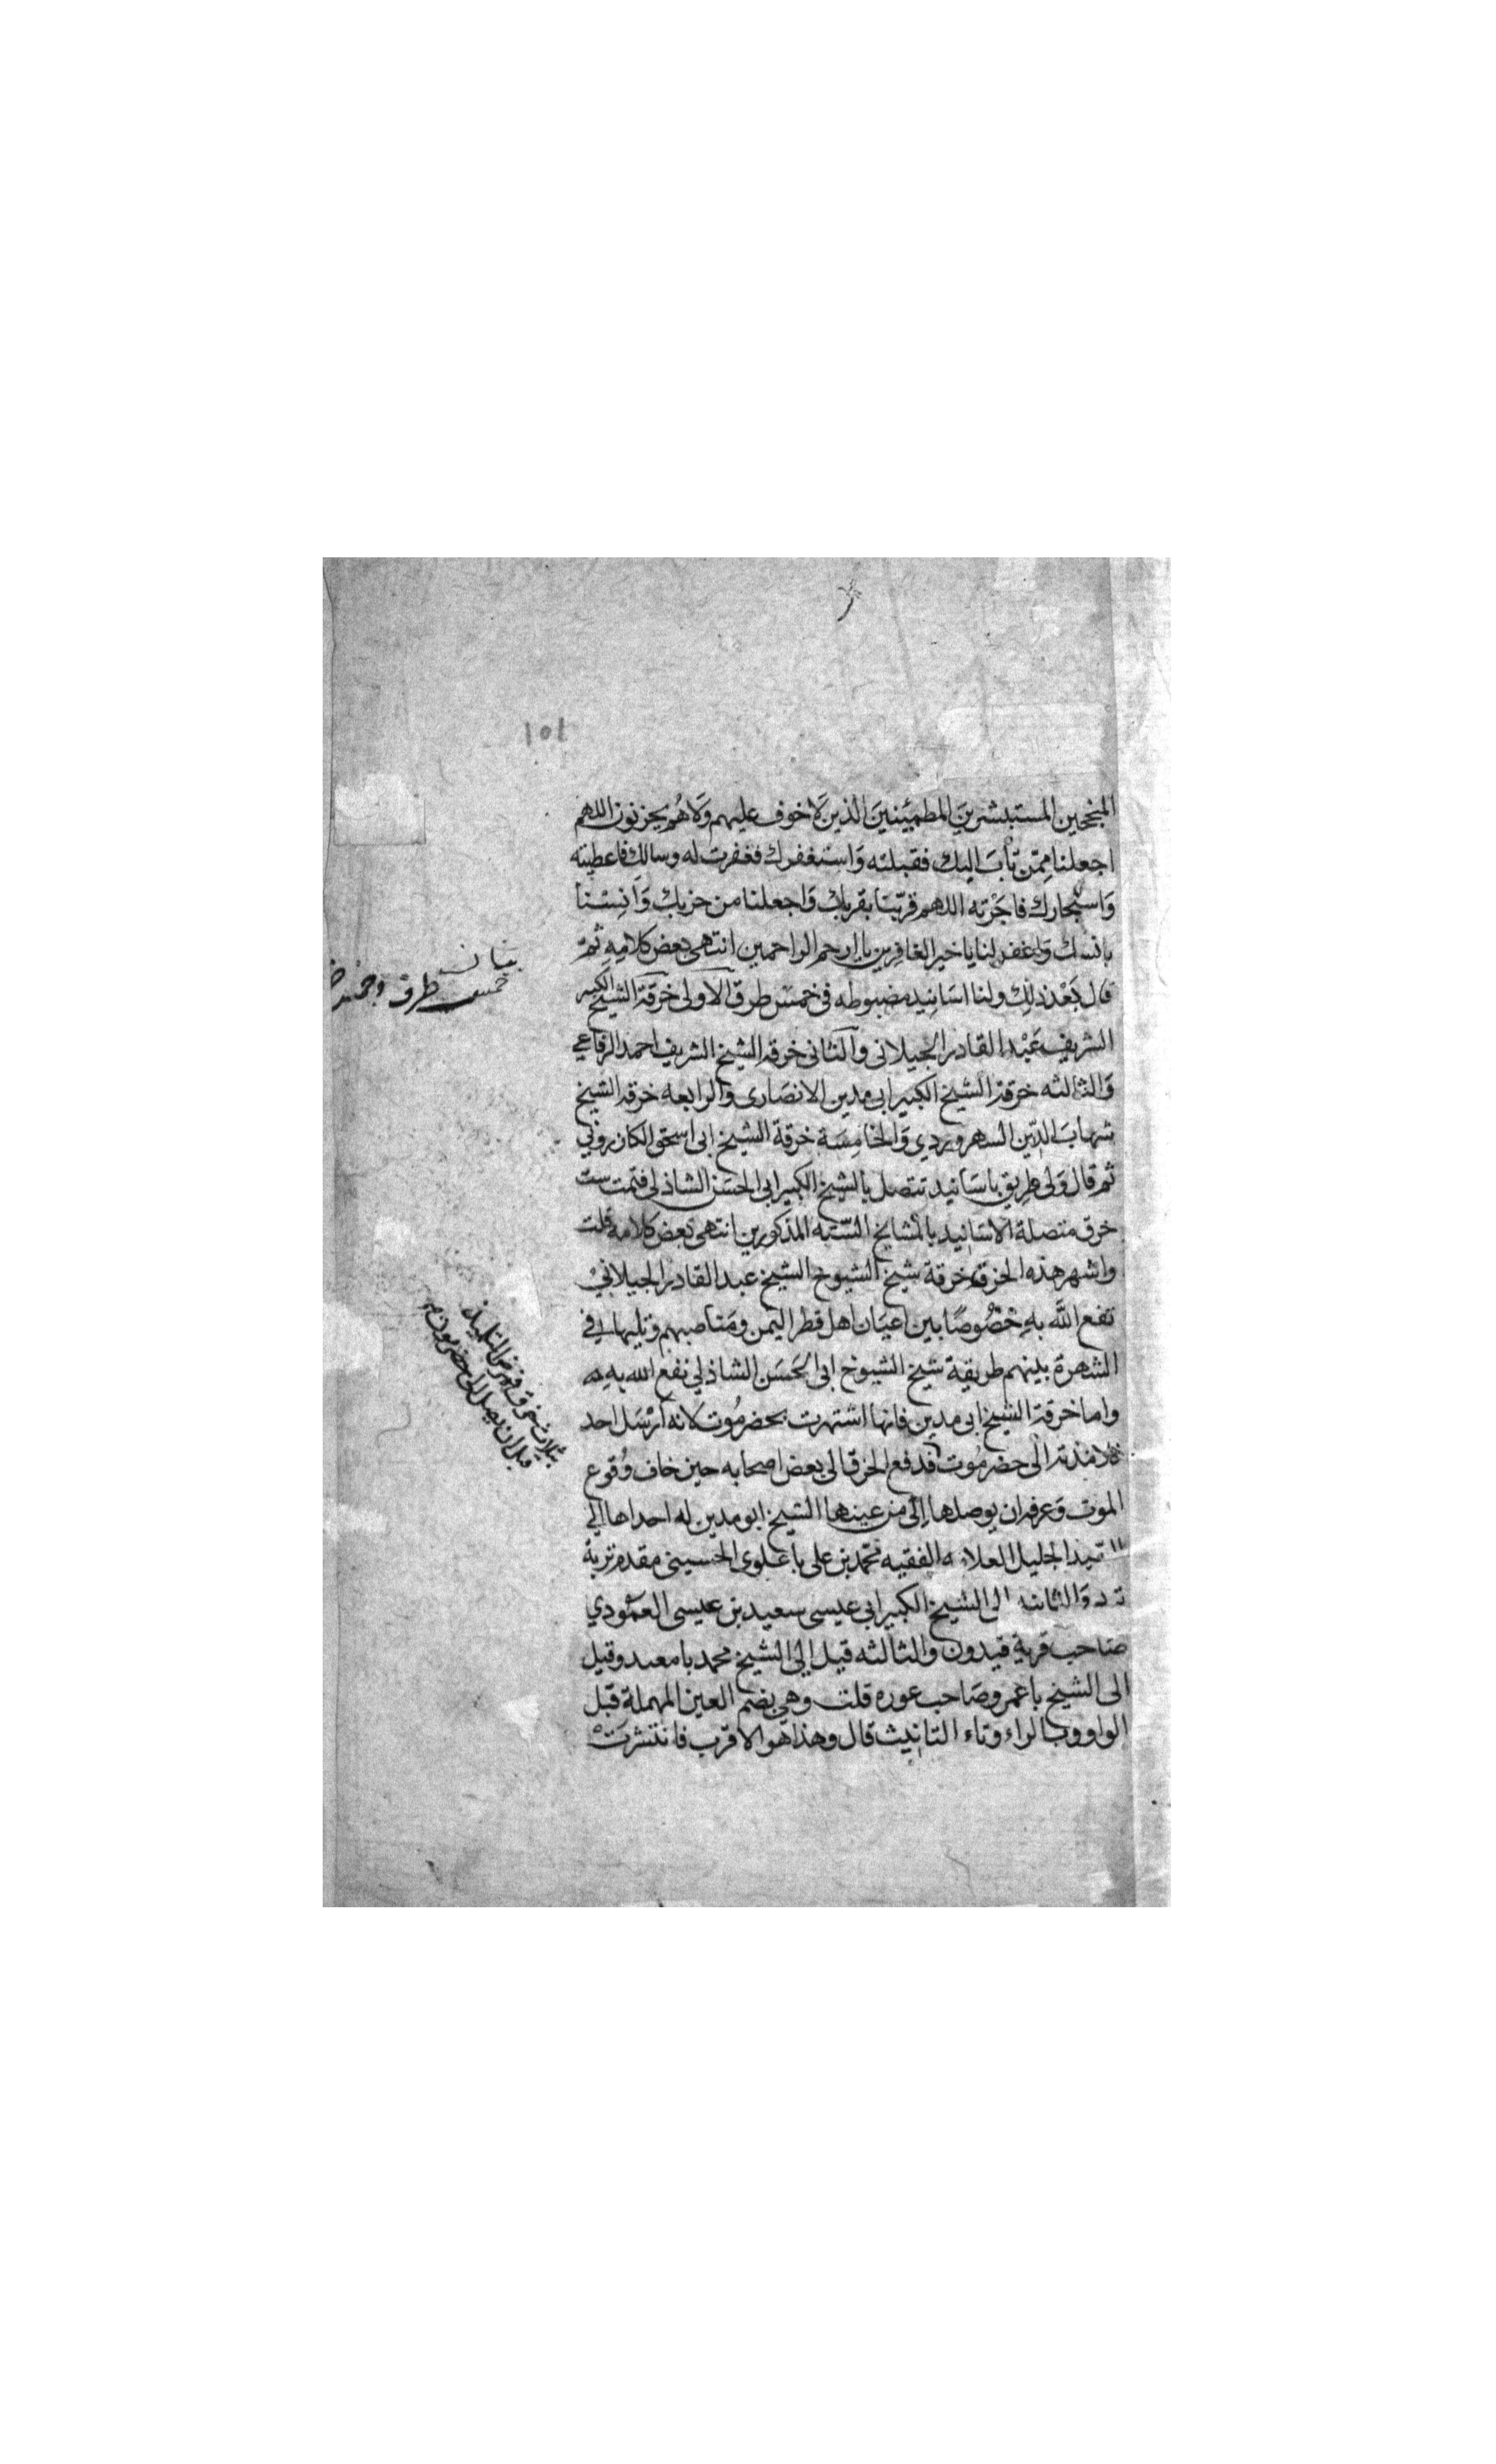 ١٥١
المنجحين المستبشرين المطمئنين الذين لَا خوف عليهم وَلَا هُم يحزنون اللهم
اجعلنا مِمّن تابَ اليك فقبلته وَاستغفرك فغفرت له وسالك فاعطيته
وَاستجارك فاجَرْته اللهم قرّبنا بقربك وَاجعلنا من حزبك وَانِسْنا
بانسك وَاغفر لنا يا خير الغافرين يا ارحم الراحمين انتهى بعض كلامِهِ ثمّ
قال بَعْد ذلك ولنا اسَانيد مضبوطه في خمسَ طرق الاولى خرقة الشيخ الكبير
الشريف عَبْد القادر الجيلاني والثانى خرقة الشيخ الشريف احمد الرفاعي
وَالثالثه خرقة الشيخ الكبير ابى مدين الانصَارى والرابعه خرقة الشيخ
شهابَ الدّين السهروردي وَالخامِسَة خرقة الشيخ ابى اسحق الكازروني
ثم قال وَلى طريق باسَانيد تتصل بالشيخ الكبير ابي الحسَن الشاذلى فتمت ست
خرق متصلة الاسَانيد بالمشايخ السّته المذكورين انتهى بعض كلامه قلت
واشهر هذه الخرق خرقة شيخ الشيوخ الشيخ عبد القادر الجيلاني
نفع اللّه بهِ خصُوصًا بين اعيَان اهل قطر اليمن ومَناصبهم وتليها في
الشهرة بينهم طريقة شيخ الشيوخ ابى الحَسَن الشاذلي نفع الله به
واما خرقة الشيخ ابى مدين فانها اشتهرت بحضرمُوت لانه ارْسَل احد
تلامذته الى حضرمُوت فدفع الخرق الى بعض اصحابه حين خاف وُقوع
الموت وَعرفه ان يوصلها اِلى من عينها الشيخ ابو مدين له احداها الي
السّيد الجليل العلامه الفقيه محمّد بن على باعلوى الحسيني مقدم تربة
والثانيه الى الشيخ الكبير ابي عيسى سعيد بن عيسى العمُودي
صَاحب قرية قيدون والثالثه قيل الى الشيخ محمد بامعبد وقيل
الى الشيخ باعمر وصَاحب عوره قلت وهي بضم العين المهملة قبل
الواو وبالراء وتاء التانيث قال وهذا هو الاقرب فانتشرَتْ
بيان
خمس طرق
بثلاث خرق فمرض التلميذ
قبل ان يصل الى حضرموت